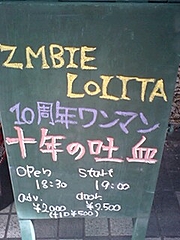 ZMBIE
LOLITA
10周年ワンマン
十年の吐血
open start
18:30 19:00
adv. door
¥2000 ¥2500
(+1D ¥500)